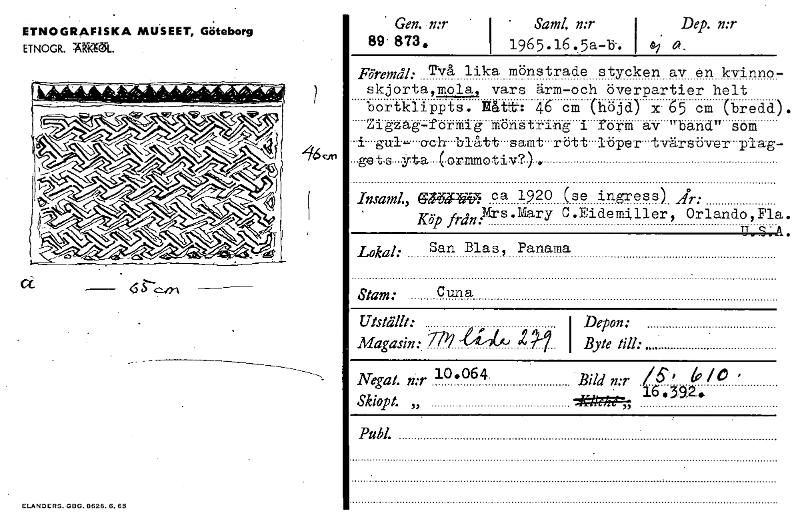 ETNOGRAFISKA MUSEET, Göteborg
ETNOGR. ARKEOL.
46 cm
a
65 cm
ELANDERS. GBG. 8626. 6. 65
Gen. n:r Saml. n:r Dep. n:r
89 873. 1965.16.5a-b. ej a.
Föremål: Två lika mönstrade stycken av en kvinno-
skjorta,mola, vars ärm-och överpartier helt
bortklippts. Mått: 46 cm (höjd) x 65 cm (bredd).
Zigzag-formig mönstring i form av "band" som
i gul- och blått samt rött löper tvärsöver plag-
gets yta (ormmotiv?).
Insaml., ca 1920 (se ingress) År:
Köp från: Mrs.Mary C.Eidemiller, Orlando,Fla.
U.S.A.
Lokal: San Blas, Panama
Stam: Cuna
Utställt: Depon:
Magasin: TM låda 279 Byte till:
Negat. n:r 10.064 Bild n:r 15.610.
Skiopt. „ Kliché „ 16.392.
Publ.